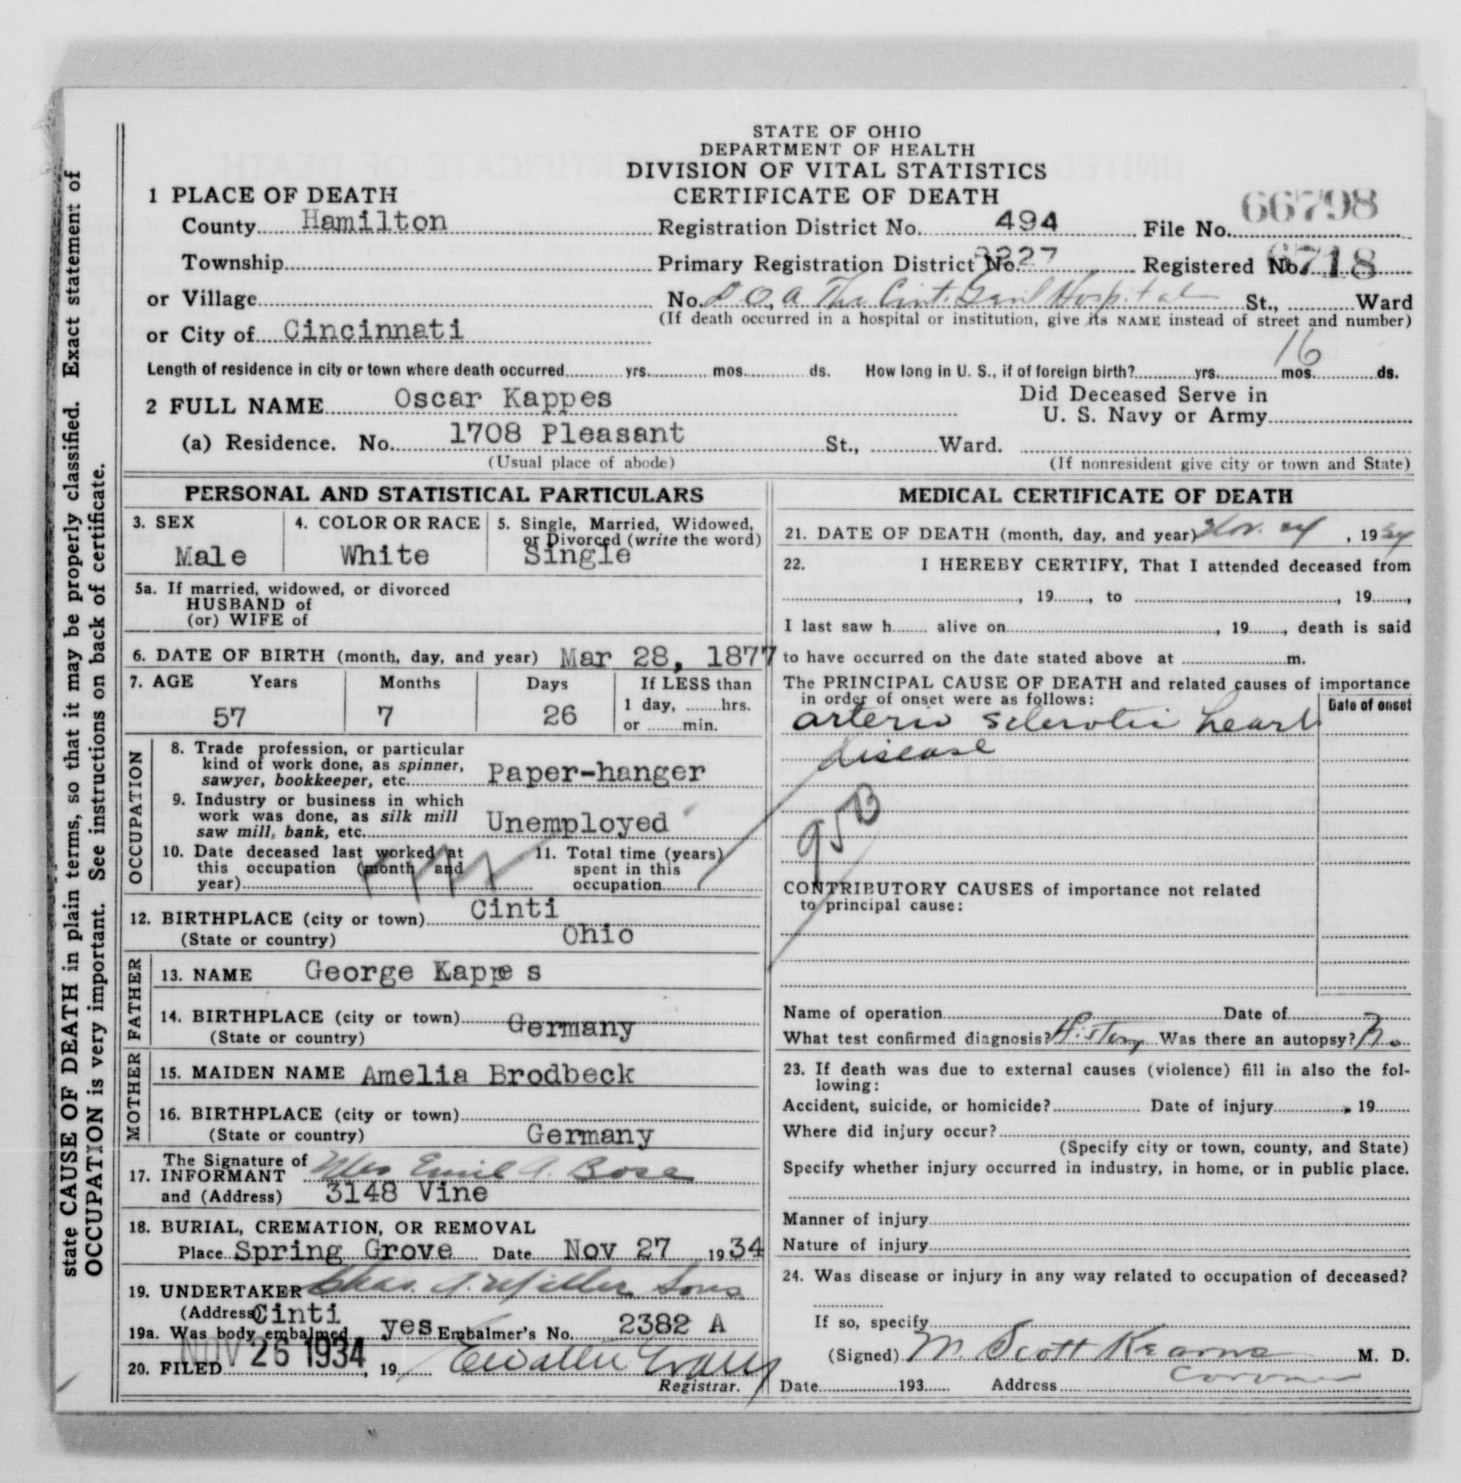 STATE OF OHIO
DEPARTMENT OF HEALTH
DIVISION OF VITAL STATISTICS
CERTIFICATE OF DEATH
1 PLACE OF DEATH
County Hamilton
Registration District No. 494 File No. 66798
Township Primary Registration District No. 8227 Registered No. 6718
or Village No. D O A The Cint. Genl Hospital St., Ward
(If death occurred in a hospital or institution, give its NAME instead of street and number)
or City of Cincinnati
16
Length of residence in city or town where death occurred yrs. mos. ds. How long in U. S., if of foreign birth? yrs. mos. ds.
2 FULL NAME Oscar Kappes
Did Deceased Serve in
U. S. Navy or Army
(a) Residence. No. 1708 Pleasant St., Ward.
(Usual place of abode) (If nonresident give city or town and State)
PERSONAL AND STATISTICAL PARTICULARS
3. SEX Male
4. COLOR OR RACE White
5. Single, Married, Widowed,
or Divorced (write the word)
Single
5a. If married, widowed, or divorced
HUSBAND of
(or) WIFE of
6. DATE OF BIRTH (month, day, and year) Mar 28, 1877
7. AGE Years Months Days If LESS than
1 day, hrs.
or min.
57 7 26
OCCUPATION
8. Trade profession, or particular
kind of work done, as spinner,
sawyer, bookkeeper, etc. Paper-hanger
9. Industry or business in which
work was done, as silk mill
saw mill, bank, etc. Unemployed
10. Date deceased last worked at
this occupation (month and
year)
11. Total time (years)
spent in this
occupation
12. BIRTHPLACE (city or town) Cinti
(State or country) Ohio
FATHER
13. NAME George Kappe s
14. BIRTHPLACE (city or town)
(State or country) Germany
MOTHER
15. MAIDEN NAME Amelia Brodbeck
16. BIRTHPLACE (city or town)
(State or country) Germany
The Signature of
17. INFORMANT Mrs Emil A. Bose
and (Address) 3148 Vine
18. BURIAL, CREMATION, OR REMOVAL
Place Spring Grove Date Nov 27 1934
19. UNDERTAKER Chas. A. Miller Sons
(Address) Cinti
19a. Was body embalmed yes Embalmer's No. 2382 A
20. FILED NOV 26 1934, 19
Registrar.
MEDICAL CERTIFICATE OF DEATH
21. DATE OF DEATH (month, day, and year) Nov. 24, 1934
22. I HEREBY CERTIFY, That I attended deceased from
, 19 , to , 19 ,
I last saw h alive on , 19 , death is said
to have occurred on the date stated above at m.
The PRINCIPAL CAUSE OF DEATH and related causes of importance
in order of onset were as follows: Date of onset
arterio sclerotic heart
disease
CONTRIBUTORY CAUSES of importance not related
to principal cause:
Name of operation Date of
What test confirmed diagnosis? History Was there an autopsy? No
23. If death was due to external causes (violence) fill in also the fol-
lowing:
Accident, suicide, or homicide? Date of injury , 19
Where did injury occur?
(Specify city or town, county, and State)
Specify whether injury occurred in industry, in home, or in public place.
Manner of injury
Nature of injury
24. Was disease or injury in any way related to occupation of deceased?
If so, specify
(Signed) M. Scott Kearns M. D.
Coroner
Date 193 Address
state CAUSE OF DEATH in plain terms, so that it may be properly classified. Exact statement of
OCCUPATION is very important. See instructions on back of certificate.